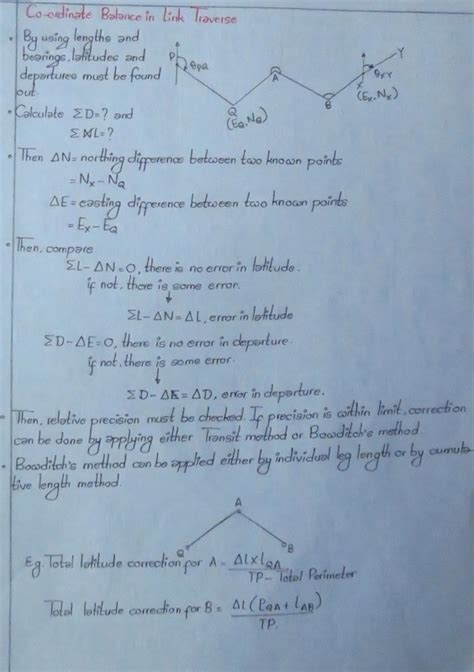 Co-ordinate Balance in Link Traverse
• By using lengths and
bearings, latitudes and
departures must be found
out.
P
θPQ
Q
(EQ,NQ)
A
B
X
(Ex,Nx)
θXY
Y
• Calculate ΣD=? and
ΣL=?
• Then ΔN= northing difference between two known points
= Nx-NQ
ΔE= easting difference between two known points
= Ex-EQ
• Then, compare
ΣL-ΔN=0, there is no error in latitude.
if not, there is some error.
ΣL-ΔN=ΔL, error in latitude
ΣD-ΔE=0, there is no error in departure.
if not, there is some error.
ΣD-ΔE=ΔD, error in departure.
• Then, relative precision must be checked. If precision is within limit, correction
can be done by applying either Transit method or Bowditch's method.
• Bowditch's method can be applied either by individual leg length or by cumula-
tive length method.
A
Q
B
Eg. Total latitude correction for A = ΔL×lQA
TP - Total Perimeter
Total latitude correction for B = ΔL(lQA + lAB)
TP.